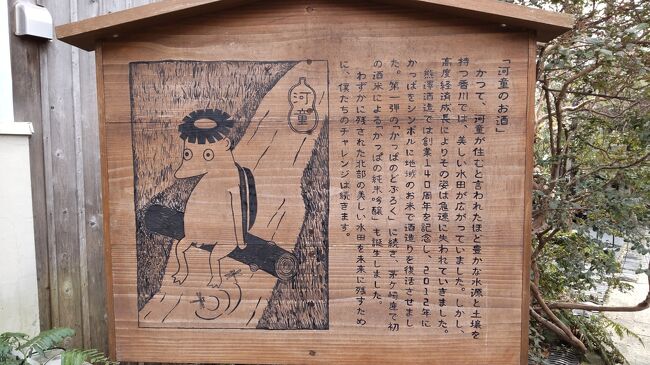 「河童のお酒」
かつて、河童が住むと言われたほど豊かな水源と土壌を
持つ香川では、美しい水田が広がっていました。しかし、
高度経済成長によりその姿は急速に失われていきました。
熊澤酒造では創業140周年を記念し、2012年に
かっぱをシンボルに地域のお米で酒造りを復活させまし
た。第一弾の「かっぱのどぶろく」に続き、茅ヶ崎産で初
の酒米による「かっぱの純米吟醸」も誕生しました。
わずかに残された北部の美しい水田を未来に残すため
に、僕たちのチャレンジは続きます。
河童